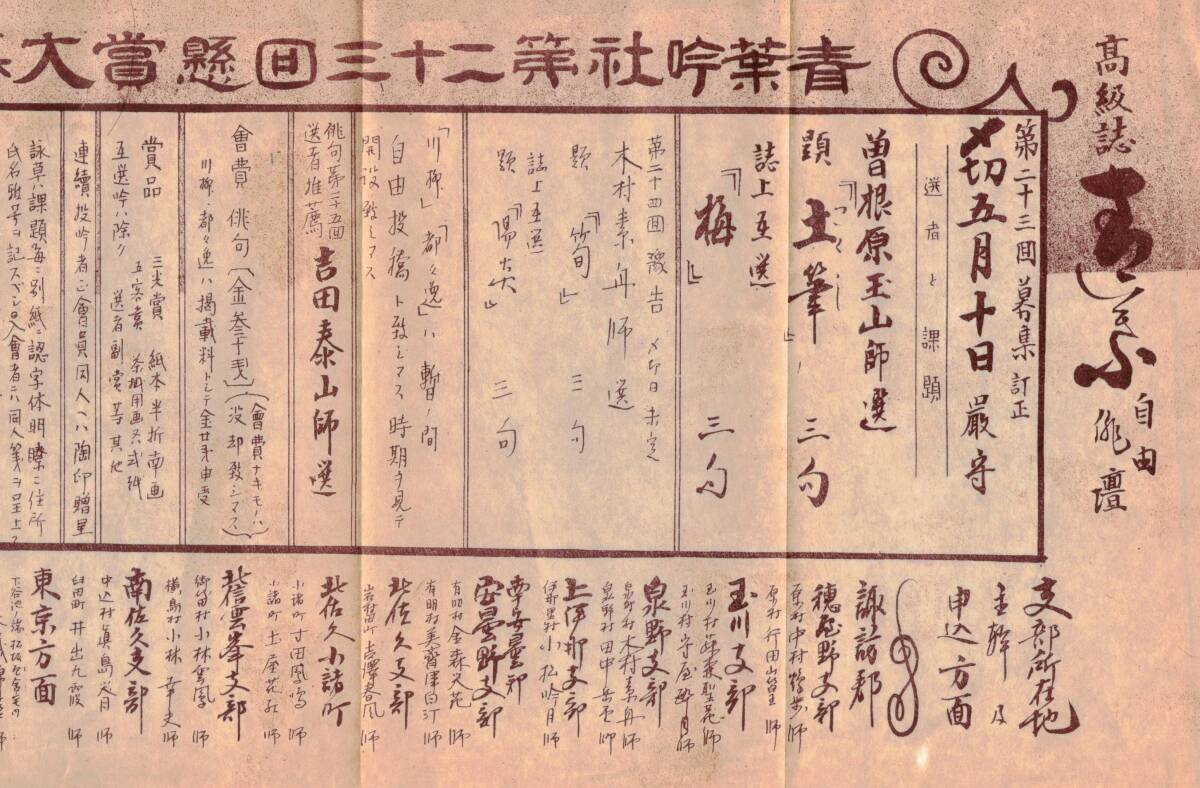 高級誌 青葉
自由俳壇
青葉吟社第二十三回懸賞大
第二十三回募集 訂正
〆切五月十日嚴守
選者と課題
曽根原玉山師選
題『土筆』 三句
つくし
誌上互選
『梅』 三句
第二十四回豫告 〆切日未定
木村素舟師選
題『筍』 三句
誌上互選
題『陽炎』 三句
「川柳」「都々逸」ハ暫ノ間
自由投稿ト致シマス時期ヲ見テ
開設致シマス
俳句第二十五回
選者推薦 吉田泰山師選
會費 俳句(金参十戔)(會費ナキモノハ
没却致シマス)
川柳・都々逸ハ掲載料トシテ金廿戔申受
賞品 三光賞 紙本半折南画
五客賞 茶掛用画又ハ式紙
互選吟ハ除ク 選者副賞等其他
連續投吟者ニ會員同人ハ陶印贈呈
詠草ハ課題毎ニ別紙ニ認字体明瞭ニ住所
氏名雅号ヲ記スベシ 入會者ニハ同人箋ヲ呈上ス
支部所在地
主幹及
申込方面
諏訪郡
穂屋野支部
原村中村
原村行田山皇師
玉川支部
玉川村守屋
泉野支部
泉野村木村素舟師
泉野村田中
上伊那支部
伊那里村小松吟月師
西安曇郡
安曇野支部
有明村金森
有明村美齊津白汀師
北佐久支部
岩村田町吉澤春風師
北佐久小諸町
小諸町寸田鳳鳴師
小諸町土屋花
北信雲峯支部
御代田村小林雲鳳師
横鳥村小林幸丈師
南佐久支部
中込村眞島
臼田町井出九霞師
東京方面